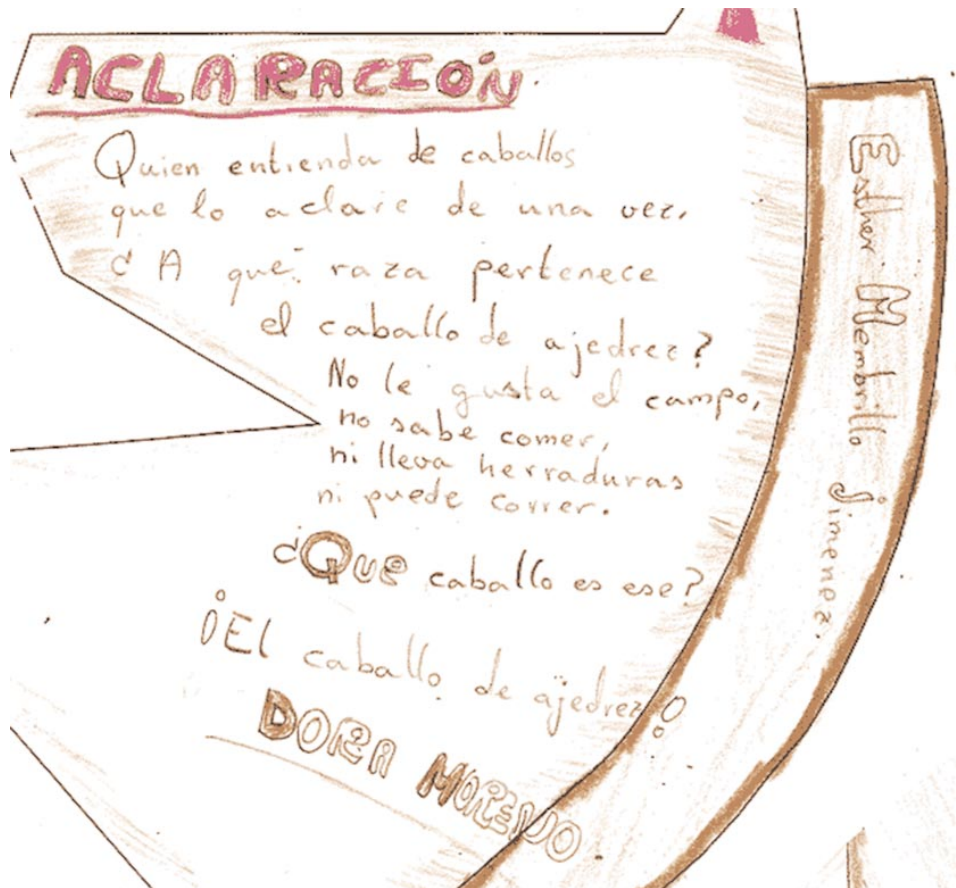 ACLARACIÓN
Quien entienda de caballos
que lo aclare de una vez.
¿A qué raza pertenece
el caballo de ajedrez?
No le gusta el campo,
no sabe comer,
ni lleva herraduras
ni puede correr.
¿QUE caballo es ese?
¡El caballo de ajedrez!
DORA MORENO
Esther Membrillo Jimenez.